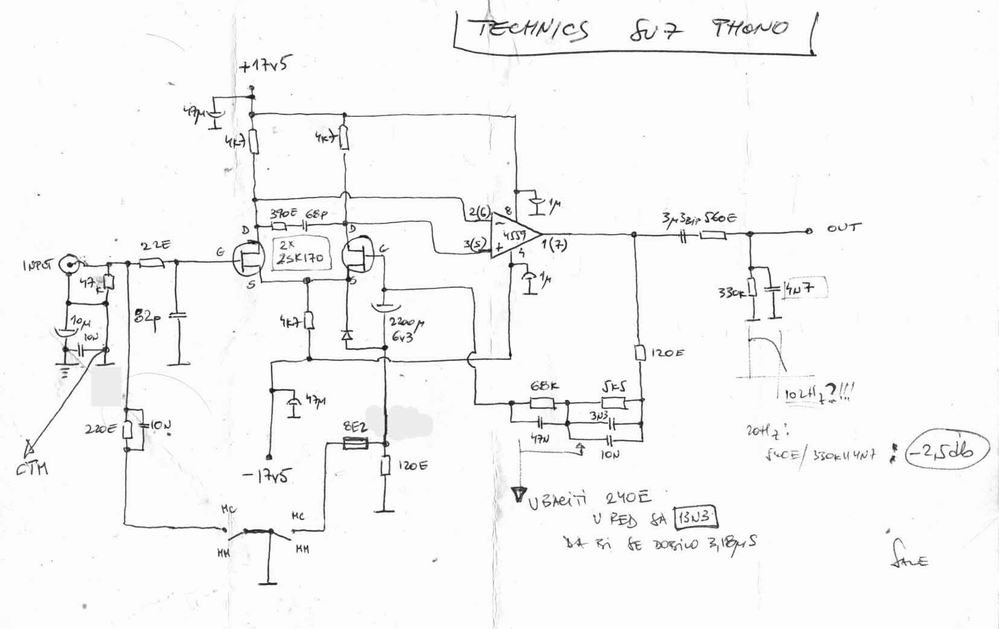 TECHNICS SU7 PHONO
+17v5
47µ
4k7
4k7
390E
68P
D
D
2(6)
8
1µ
4559
3(5)
+
4
1(7)
1µ
3µ3 Bip 560E
OUT
INPUT
22E
G
2x
2SK170
G
S
S
47k
82p
10µ
10N
4k7
2200µ
6v3
330k
4N7
120E
102Hz?!!!
68K
5k5
3N3
47N
10N
220E
10N
47µ
8E2
120E
20Hz:
560E/330k114N7 : -2,5db
CTM
-17v5
MC
MC
MM
MM
UBACITI 240E
U RED SA 13N3
DA BI SE DOBILO 3,18µS
SALE